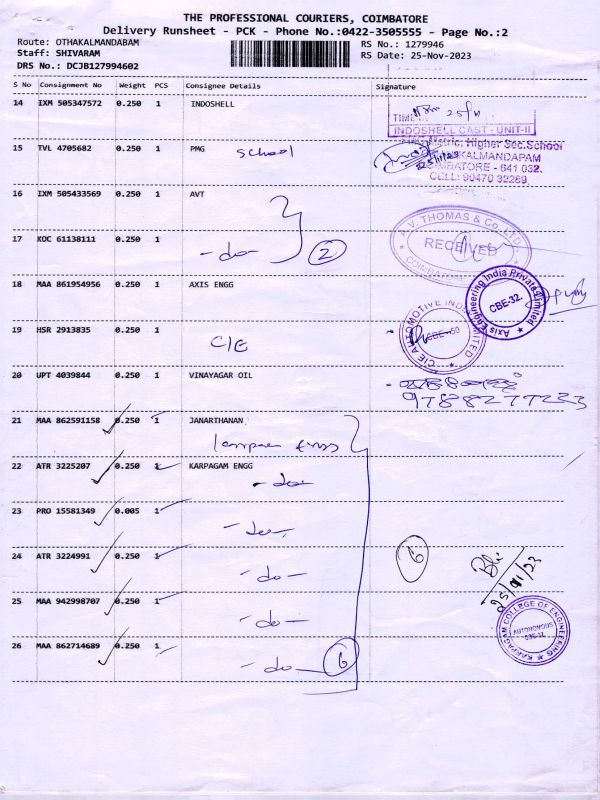 THE PROFESSIONAL COURIERS, COIMBATORE
Delivery Runsheet - PCK - Phone No.:0422-3505555 - Page No.:2
Route: OTHAKALMANDABAM
RS No.: 1279946
Staff: SHIVARAM
RS Date: 25-Nov-2023
DRS No.: DCJB127994602
S No Consignment No Weight PCS Consignee Details Signature
14 IXM 505347572 0.250 1 INDOSHELL
TIME: 25/11
INDOSHELL CAST - UNIT-II
15 TVL 4705682 0.250 1 PMG school
Metric. Higher Sec. School
KALMANDAPAM
COIMBATORE - 641 032.
CELL: 90470 32289
16 IXM 505433569 0.250 1 AVT
A.V. THOMAS & CO. LTD
RECEIVED
17 KOC 61138111 0.250 1 -do- 2
18 MAA 861954956 0.250 1 AXIS ENGG
Axis Engineering India Private Limited
CBE-32
19 HSR 2913835 0.250 1 CIE
CIE AUTOMOTIVE INDIA LIMITED
20 UPT 4039844 0.250 1 VINAYAGAR OIL
9788277233
21 MAA 862591158 0.250 1 JANARTHANAN
22 ATR 3225207 0.250 1 KARPAGAM ENGG
-do-
23 PRO 15581349 0.005 1 -do-
24 ATR 3224991 0.250 1 -do- 6
25 MAA 942998707 0.250 1 -do-
25/11/23
26 MAA 862714689 0.250 1 -do- 6
KARPAGAM COLLEGE OF ENGINEERING
AUTONOMOUS
CBE-32